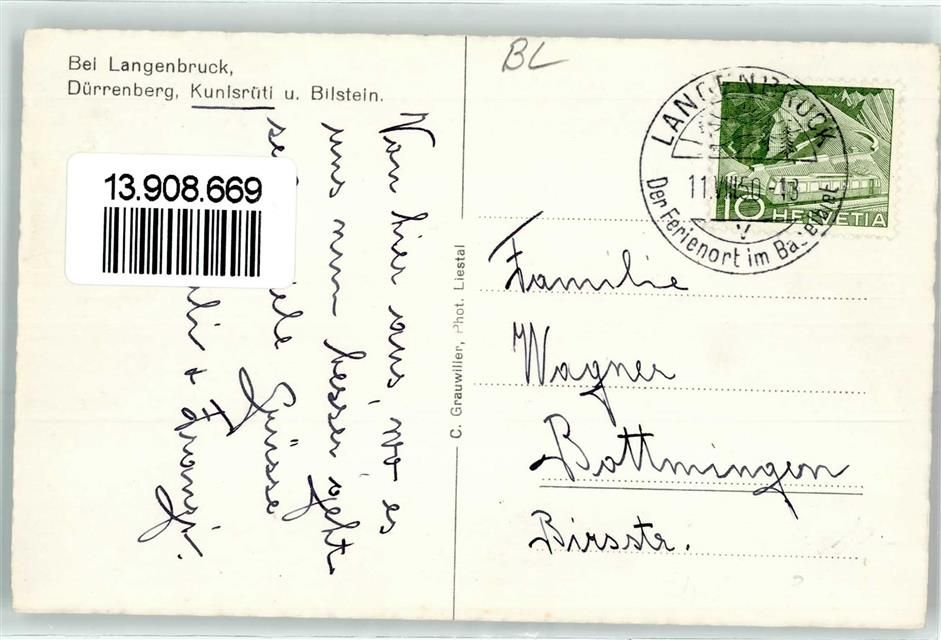 Bei Langenbruck,
Dürrenberg, Kunisrüti u. Bilstein.
13.908.669
Von hier aus, wo es
uns nun besser geht
viele Grüsse
+
C. Grauwiller, Phot. Liestal
BL
LANGENBRUCK
11.VIII.50.-13
Der Ferienort im Baselbiet
10 HELVETIA
Familie
Wagner
Bottmingen
Birsstr.